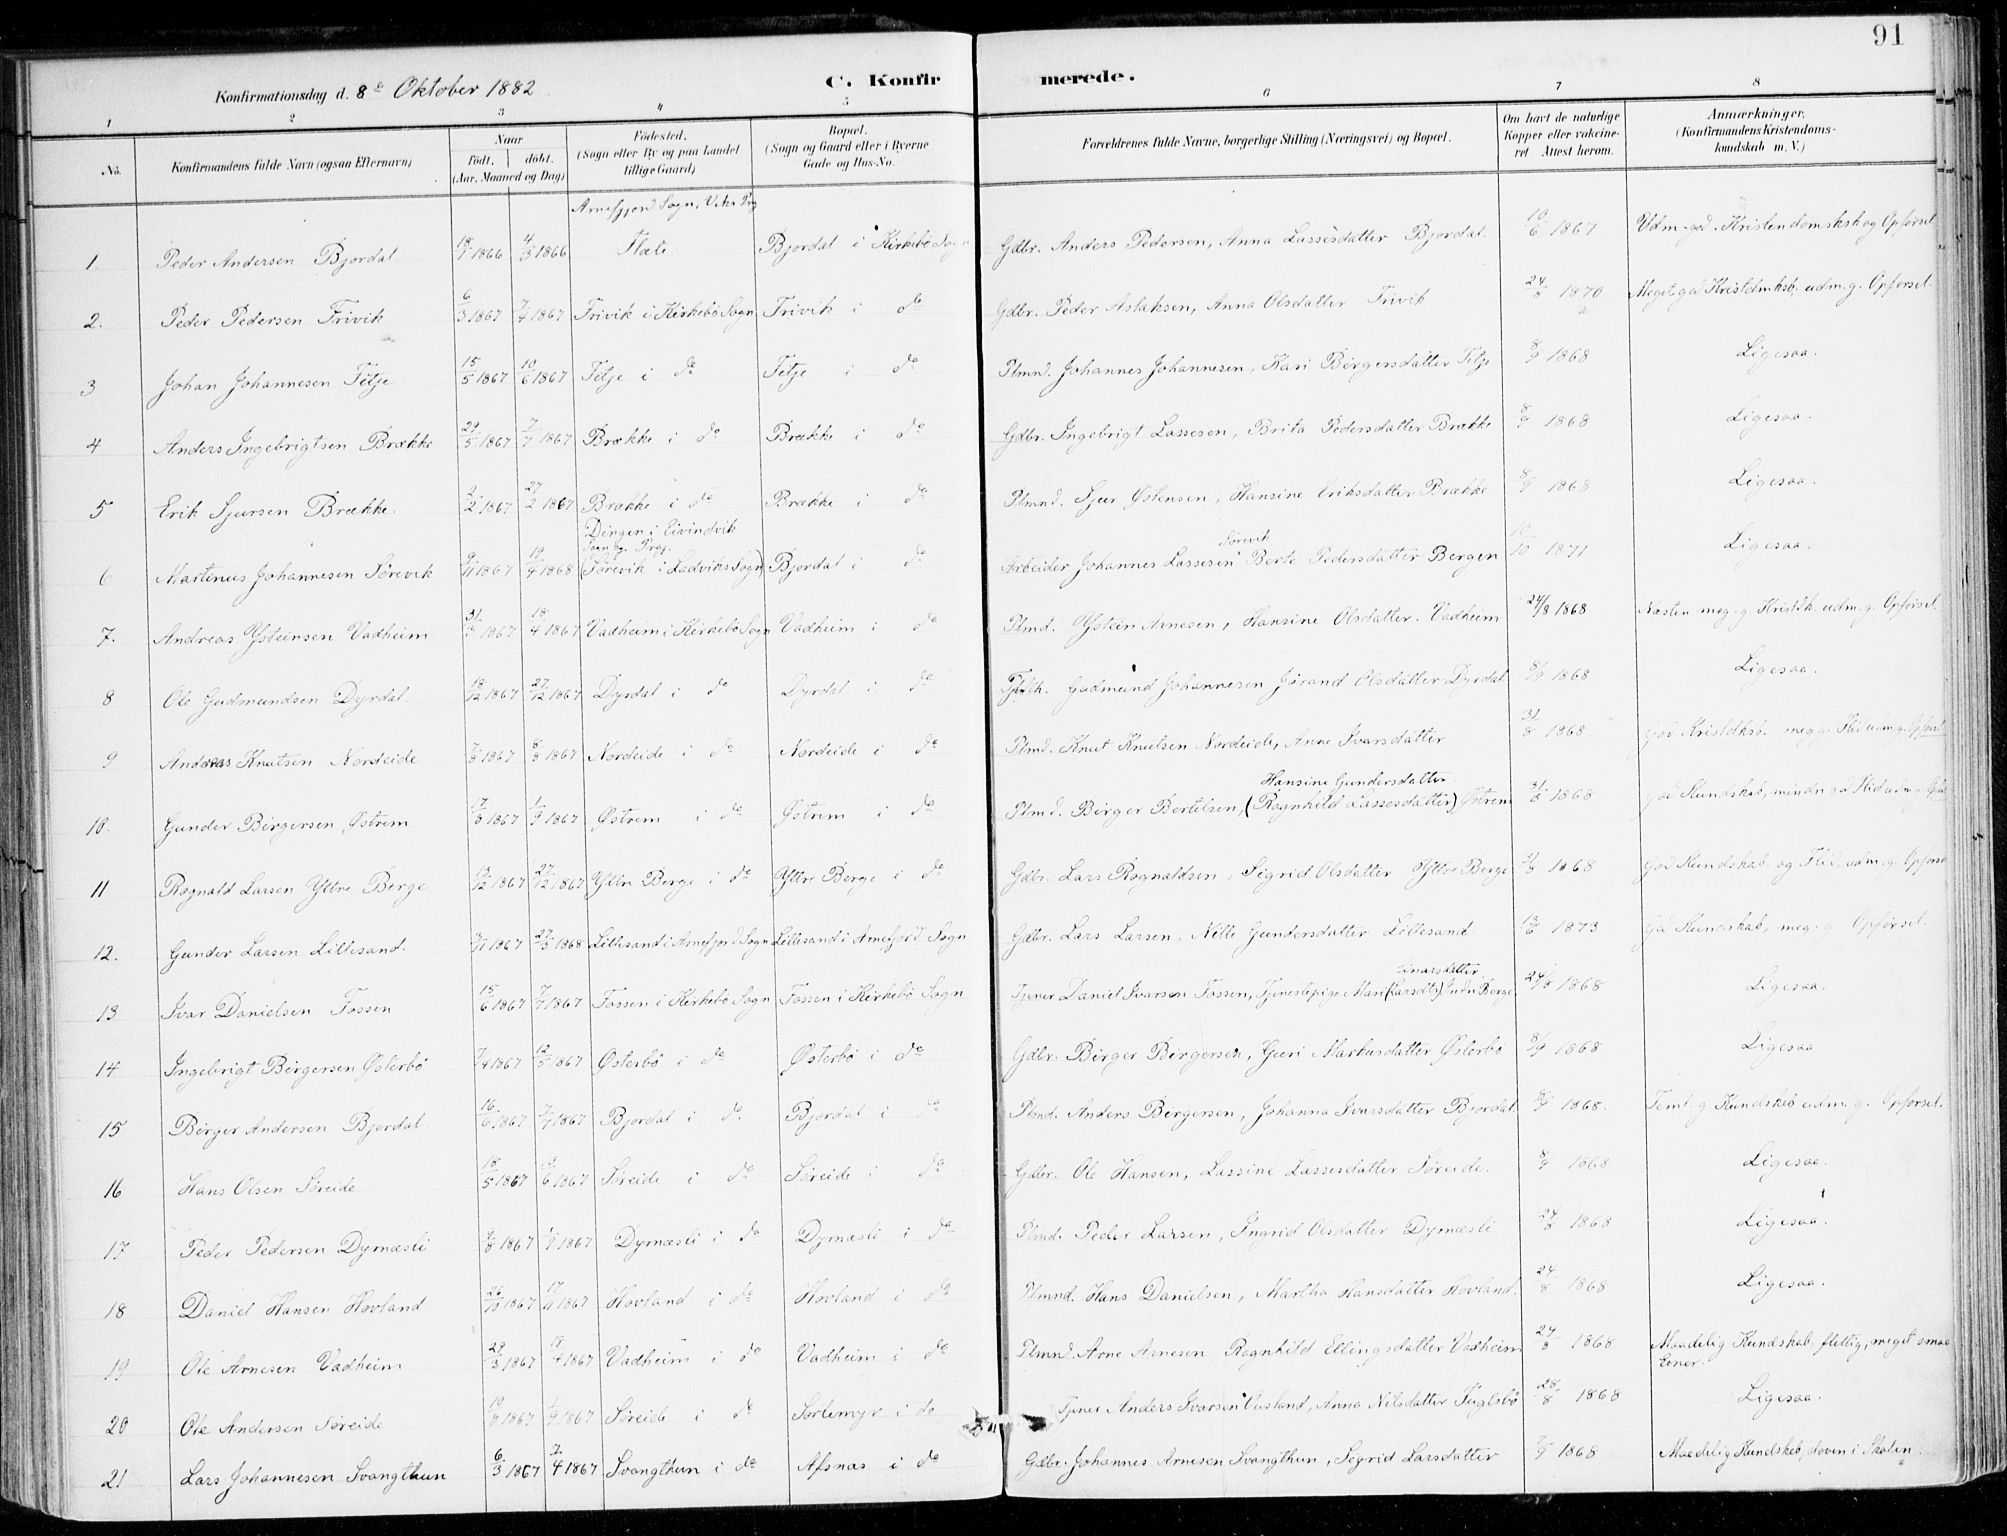 91
Konfirmationsdag d. 8de Oktober 1882
C. Konfirmerede.
1 2 3 4 5 6 7 8
No.
Konfirmandens fulde Navn (ogsaa Efternavn)
Naar
født. døbt.
(Aar, Maaned og Dag)
Fødested.
(Sogn eller By og paa Landet tillige Gaard)
Bopæl.
(Sogn og Gaard eller i Byerne Gade og Hus-No.
Forældrenes fulde Navne, borgerlige Stilling (Næringsvei) og Bopæl.
Om havt de naturlige Kopper eller vakcineret Attest herom.
Anmærkninger, (Konfirmandens Kristendomskundskab m. V.)
Arnefjord Sogn, Viks
1. Peder Andersen Bjordal 18/1 1866 4/3 1866 Flete Bjordal i Kirkebö Sogn Gdbr. Anders Pedersen, Anna Lassesdatter Bjordal 10/6 1867 Udm. god. Kristendomsksk og Opförsel
2. Peder Pedersen Trivik 6/3 1867 7/4 1867 Trivik i Kirkebö Sogn Trivik i do Gdbr. Peder Aslaksen, Anna Olsdatter Trivik 24/8 1870 Meget god Kristdmksk. udm. g. Opförsel.
3 Johan Johannesen Titje 15/5 1867 10/6 1867 Titje i do Titje i do Plmnd. Johannes Johannesen, Kari Börgersdatter Titje 8/9 1868 Ligesaa.
4 Anders Ingebrigtsen Brække 29/5 1867 7/7 1867 Brække i do Brække i do Gdbr. Ingebrigt Lassesen, Brita Pedersdatter Brække 8/9 1868 Ligesaa.
5 Erik Sjursen Brække. 2/2 1867 27/2 1867 Brække i do Brække i do Plmnd. Sjur Østensen, Hansine Eriksdatter Brække 8/9 1868 Ligesaa.
Dingen i Eivindvik
Sogn og Præg.
Sörevik
6 Martinus Johannesen Sörevik 9/11 1867 19/4 1868 (Sörevik i Ladviks Sogn) Bjordal i do Arbeider Johannes Lassesen Berte Pedersdatter Bergen 10/10 1871 Ligesaa.
7. Andreas Ysteinsen Vadheim 31/3 1867 18/4 1867 Vadheim i Kirkebö Sogn Vadheim i do Plmd. Ystein Arnesen, Hansine Olsdatter. Vadheim 24/8 1868 Næsten meg. g. Kristdk. udm. g. Opförsel.
8 Ole Gudmundsen Dyrdal. 18/12 1867 27/12 1867 Dyrdal i do Dyrdal i do Gudmund Johannesen Jörand Olsdatter Dyrdal 8/9 1868 Ligesaa.
9 Andreas Knutsen Nordeide 7/8 1867 8/8 1867 Nordeide i do Nordeide i do Plmd. Knut Knutsen Nordeide, Anne Ivarsdatter 31/8 1868 God Kristdksk. meg g. Flid udm. g. Opförsel
Hansine Gundersdatter
10. Gunder Börgersen Østrem 17/8 1867 1/9 1867 Østrem i do Østrem i do Plmd. Börger Bertelsen, (Ragnhild Lassesdatter) Østrem 31/8 1868 God Kundskab, mindre god Flid udm. g.
11 Ragnald Larsen Yttre Berge 13/12 1867 27/12 1867 Yttre Berge i do Yttre Berge i do Gdbr. Lars Ragnaldsen, Sigrid Olsdatter Yttre Berge 31/8 1868 God Kundskab og Flid, udm. g. Opförsel
12. Gunder Larsen Lillesand. 3/11 1867 27/5 1868 Lillesand i Arnefjord Sogn Lillesand i Arnefjord Sogn Gdbr. Lars Larsen, Nille Gundersdatter Lillesand 13/6 1873 God Kundskab, meg. g. Opförsel.
Einarsdatter
13 Ivar Danielsen Fossen 15/6 1867 7/7 1867 Fossen i Kirkebö Sogn Fossen i Kirkebö Sogn Tjener Daniel Ivarsen Fossen, Tjenestepige Mari (Larsdtr) Indre Berge 24/8 1868 Ligesaa.
14 Ingebrigt Börgersen Østerbö 7/4 1867 12/5 1867 Østerbö i do Østerbö i do Gdbr. Börger Börgersen, Guri Markusdatter Østerbö 8/9 1868 Ligesaa
15 Börger Andersen Bjordal 16/6 1867 7/7 1867 Bjordal i do. Bjordal i do Plmd. Anders Börgersen, Johanna Ivarsdatter Bjordal 8/9 1868. Teml. g Kundskab udm. g. Opförsel.
16 Hans Olsen Söreide 18/5 1867 /6 1867 Söreide i do Söreide i do Gdbr. Ole Hansen, Lassine Lassesdatter Söreide. 8/9 1868 Ligesaa.
17 Peder Pedersen Dyrnæsli /8 1867 1/9 1867 Dyrnæsli i do Dyrnæsli i do Plmd. Peder Larsen, Ingrid Olsdatter Dyrnæsli 24/8 1868 Ligesaa.
18 Daniel Hansen Hovland 26/10 1867 17/11 1867 Hovland i do Hovland i do Plmnd. Hans Danielsen, Martha Hansdatter Hovland. 24/8 1868 Ligesaa.
19 Ole Arnesen Vadheim 29/3 1867 18/4 1867 Vadheim i do Vadheim i do Plmnd. Arne Arnesen Ragnhild Ellingsdatter Vadheim 24/8 1868 Maadelig Kundskab, flittig, meget smaa Evner.
20 Ole Andersen Söreide 10/8 1867 1/9 1867 Söreide i do Sørlemyr i do Tjener Anders Ivarsen, Anna Nilsdatter Fuglsbö 28/8 1868 Ligesaa.
21 Lars Johannesen Svangthun 6/3 1867 7/4 1867 Svangthun i do Afsnæs i do Gdbr. Johannes Arnesen Svangthun, Segrid Larsdatter 7/9 1868 Maadelig Kundskab, doven i Skolen.